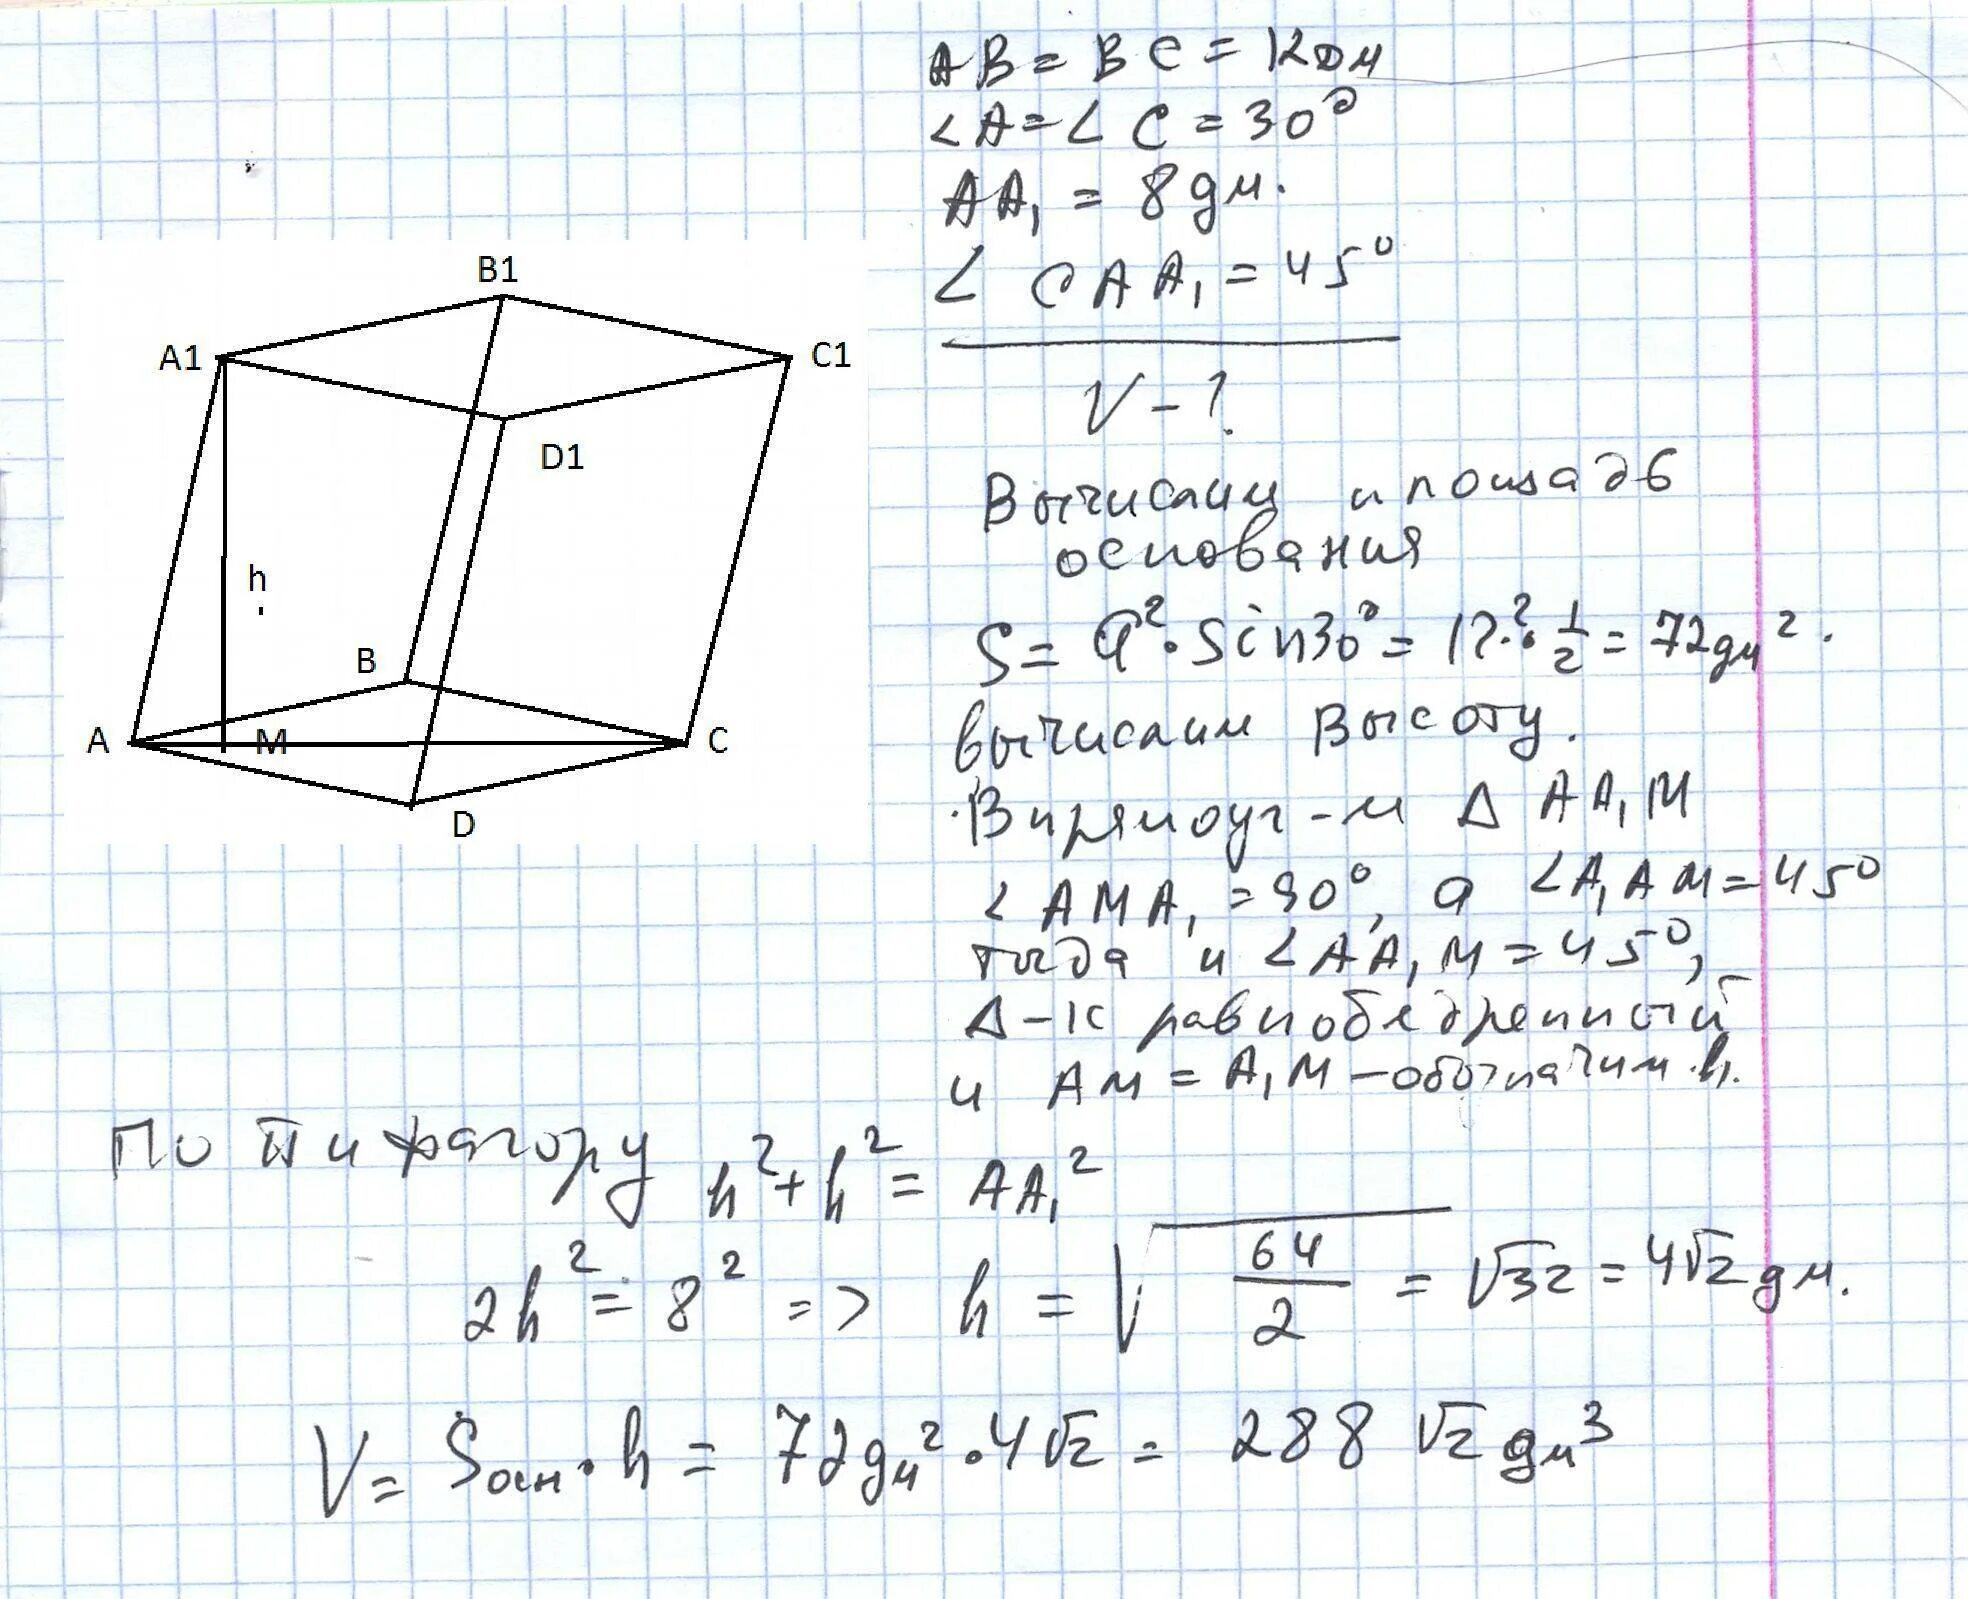 AB = BC = 12дм
∠A = ∠C = 30°
AA₁ = 8дм.
∠ CAA₁ = 45°
V - ?
B1
A1
C1
D1
h
B
A
M
C
D
Вычислим площадь
основания
S = a² · sin30° = 12² · 1/2 = 72дм².
вычислим высоту.
В прямоуг-м Δ AA₁M
∠AMA₁ = 90°, а ∠A₁AM = 45°
тогда и ∠AA₁M = 45°,
Δ-к равнобедренный
и AM = A₁M - обозначим h.
По Пифагору h² + h² = AA₁²
2h² = 8² => h = √(64/2) = √32 = 4√2 дм.
V = Sосн · h = 72дм² · 4√2 = 288 √2 дм³